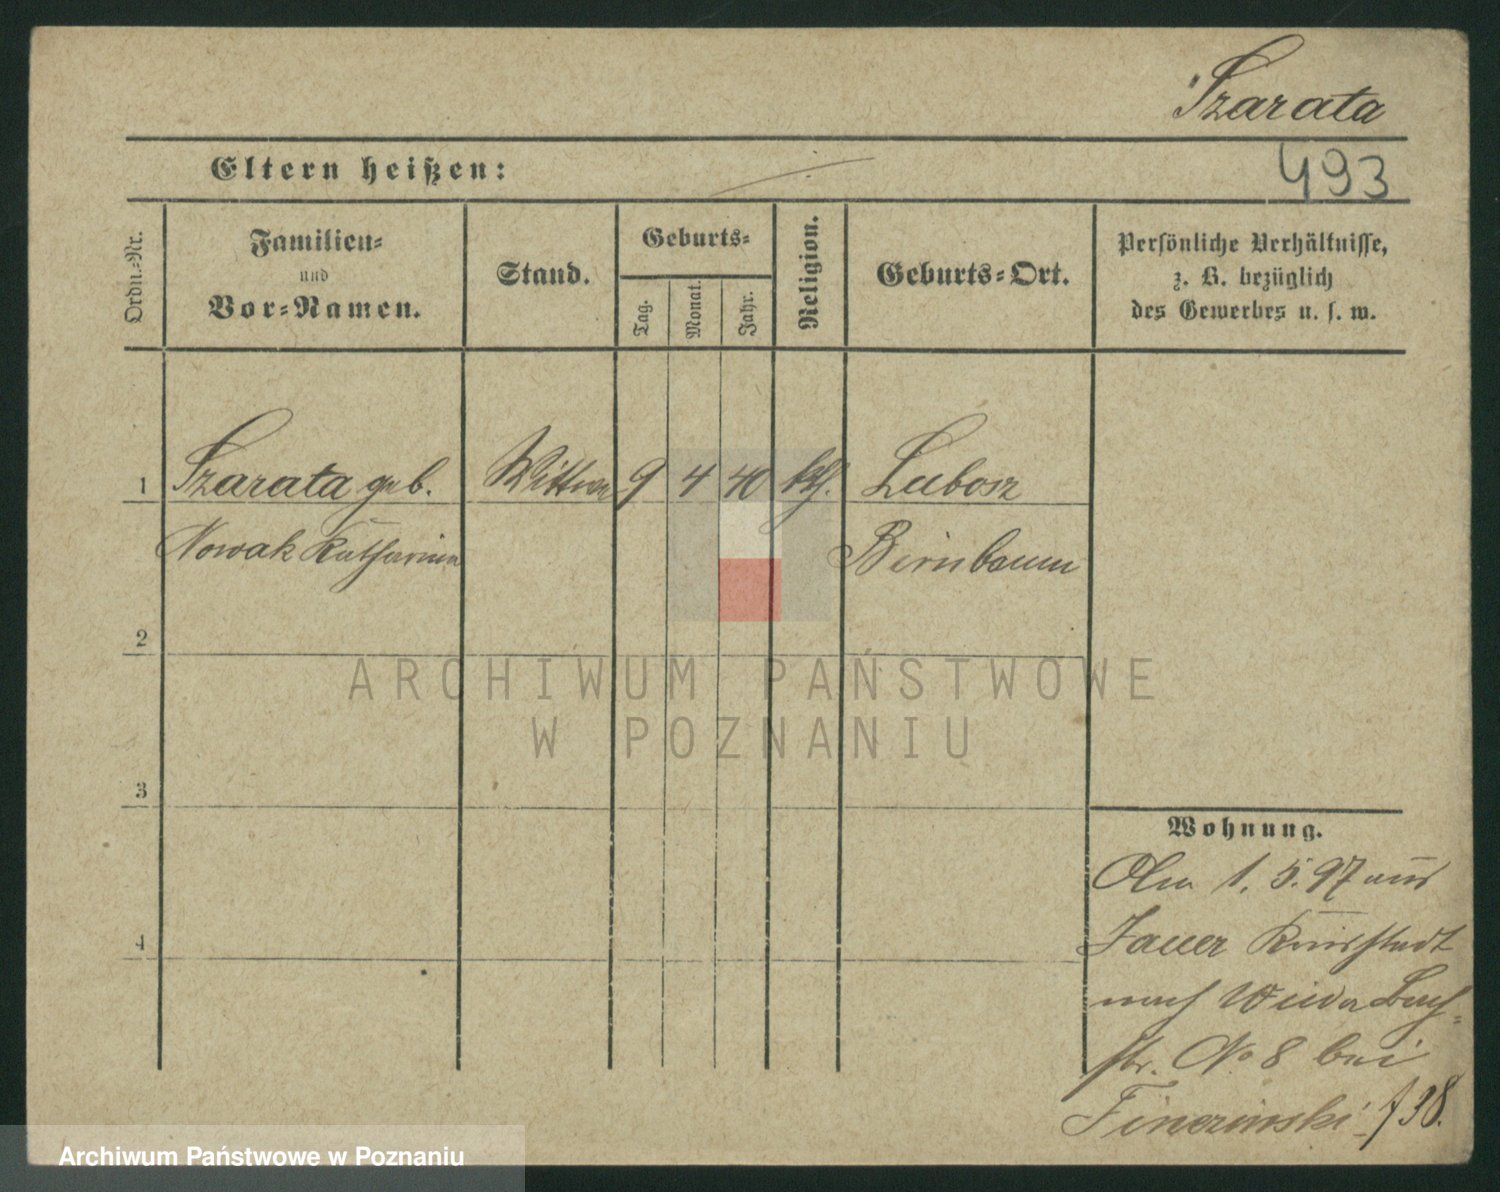 Szarata
Eltern heißen:
493
Ordn.-Nr.
Familien-
und
Vor-Namen.
Stand.
Geburts-
Tag.
Monat.
Jahr.
Religion.
Geburts-Ort.
Persönliche Verhältnisse,
z. B. bezüglich
des Gewerbes u. s. w.
1 Szarata geb. Wittwe 9 4 40 kth. Lubosz
Nowak Katharina Birnbaum
2
3
4
Wohnung.
1. 5. 97 aus
Jauer
nach
str. No 8 bei
ARCHIWUM PAŃSTWOWE
W POZNANIU
Archiwum Państwowe w Poznaniu